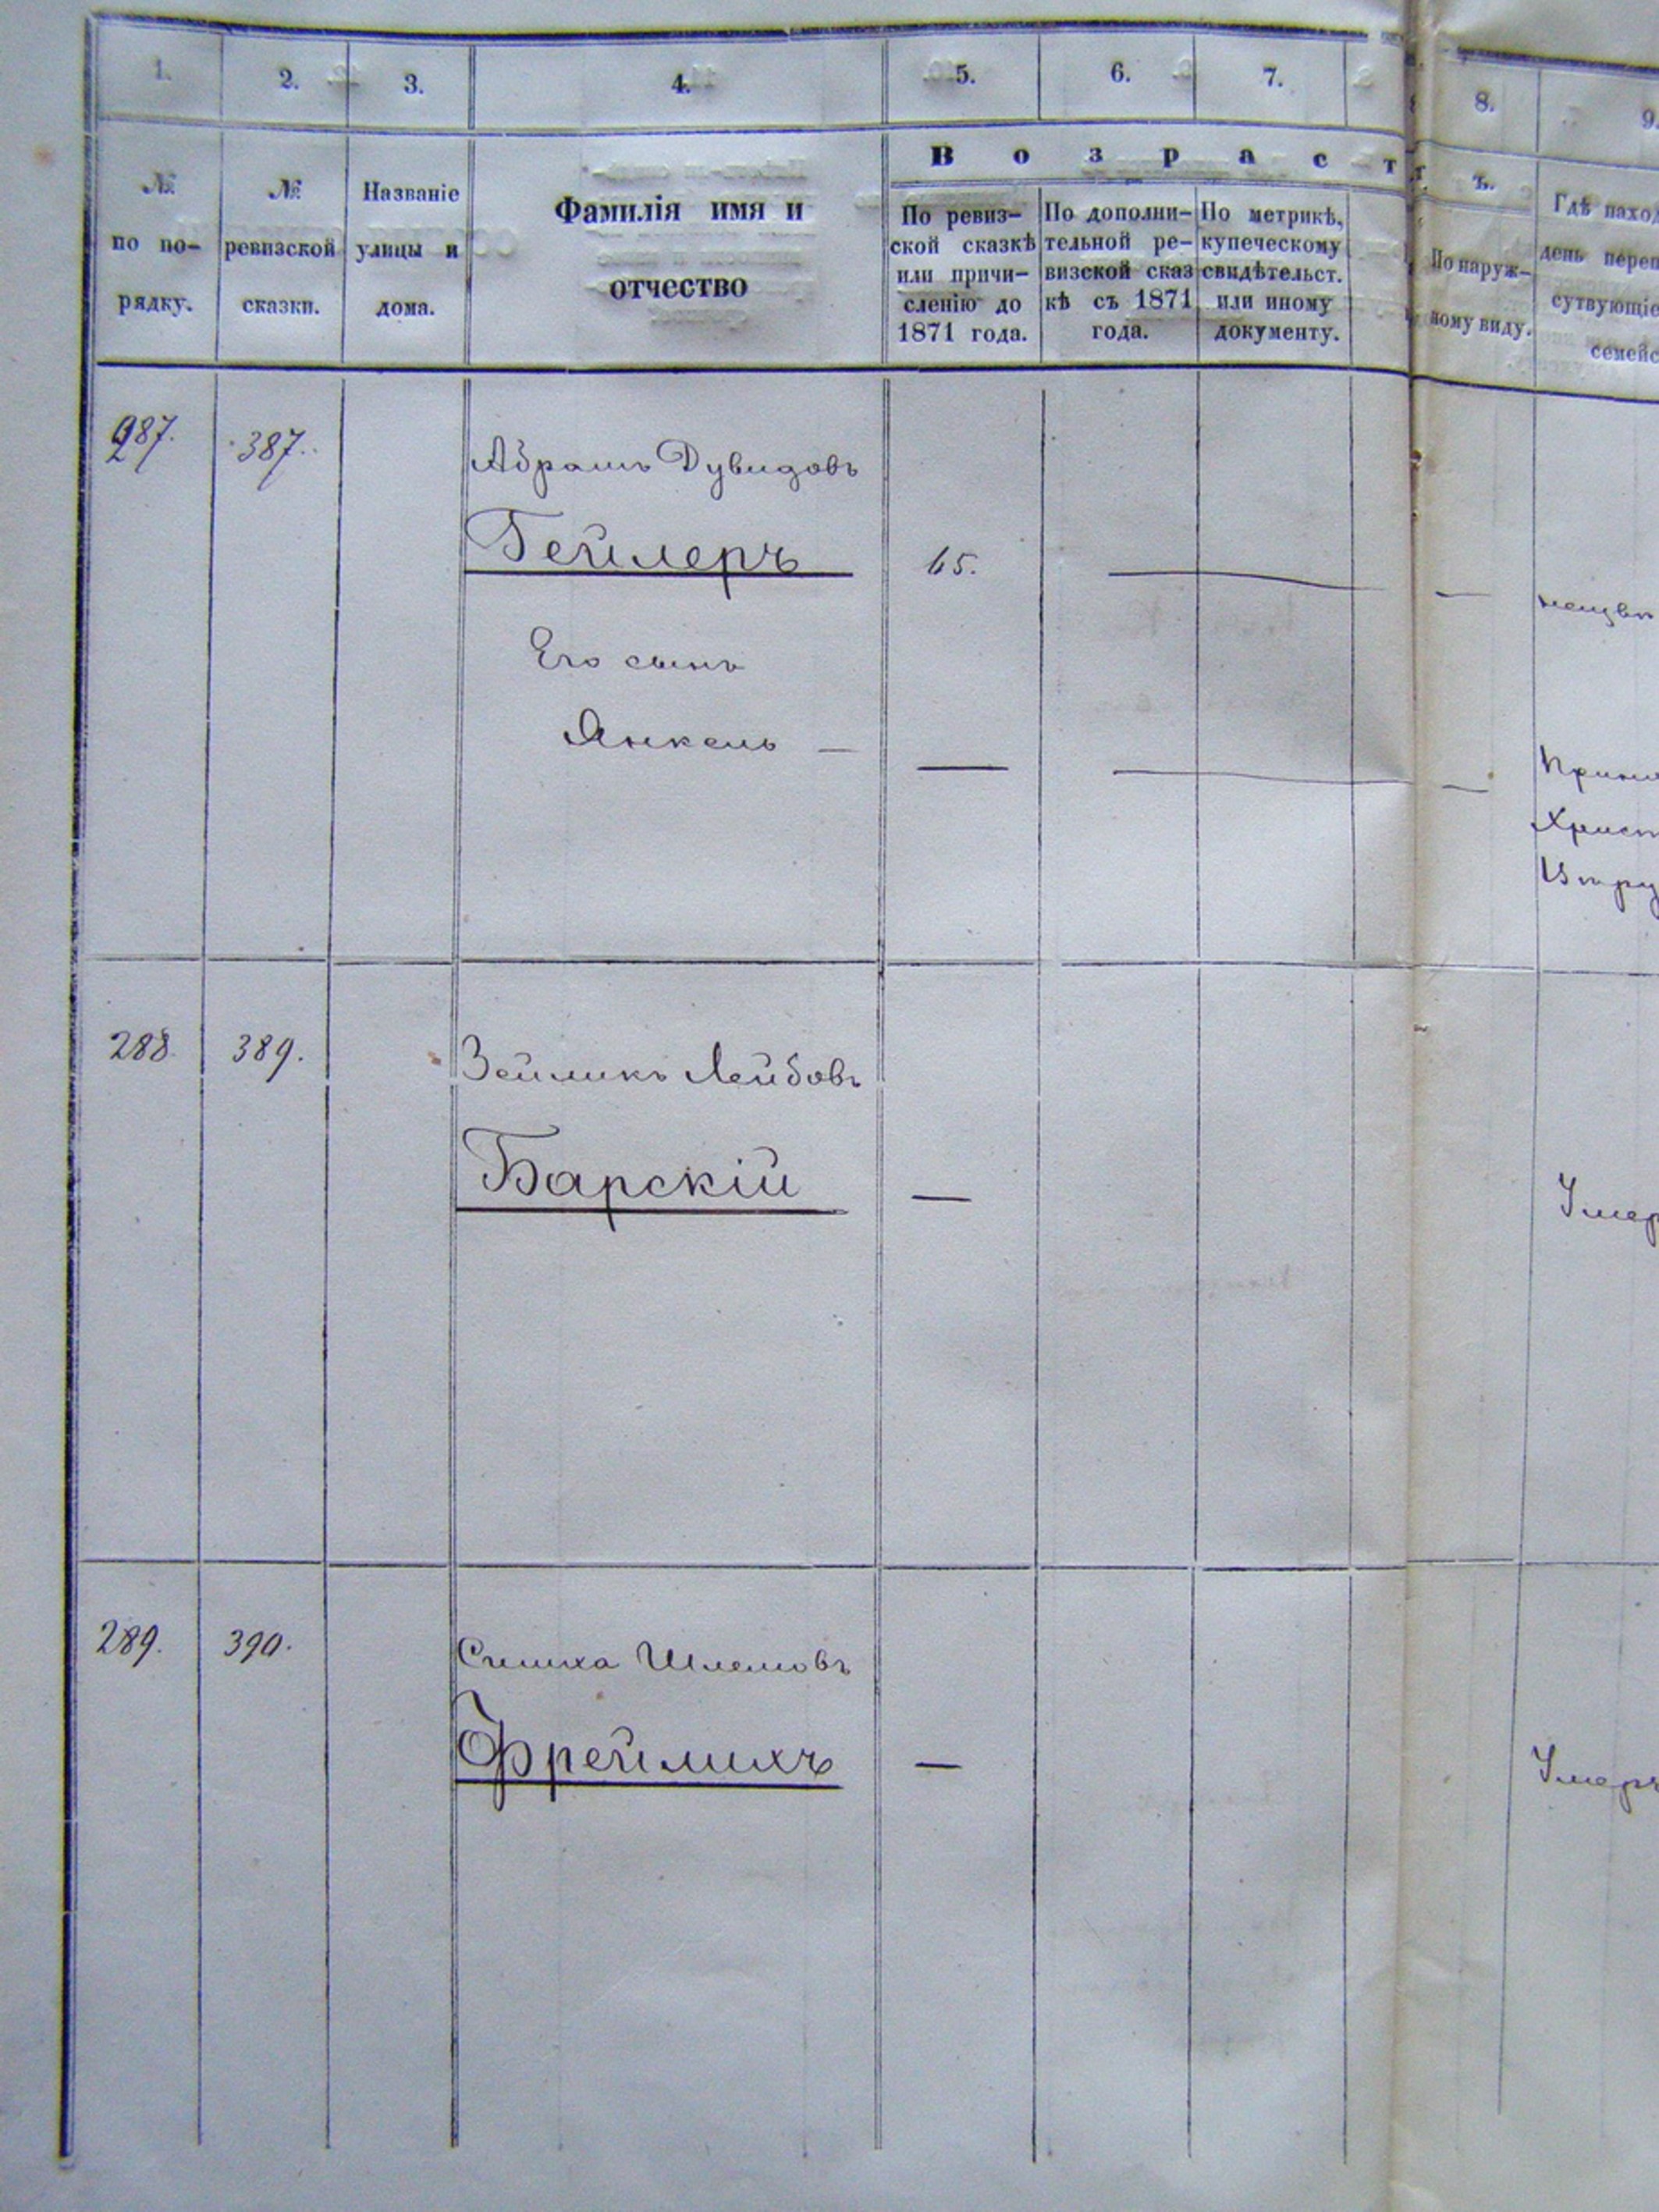 1. 2. 3. 4. 5. 6. 7. 8. 9.
В о з р а с т ъ.
№ по по-
рядку.
№
ревизской
сказки.
Названіе
улицы и
дома.
Фамилія имя и
отчество
По ревиз-
ской сказкѣ
или причи-
сленію до
1871 года.
По дополни-
тельной ре-
визской сказ
кѣ съ 1871
года.
По метрикѣ,
купеческому
свидѣтельст.
или иному
документу.
По наруж-
ному виду.
Гдѣ наход
день переп
сутвующіе
семейс
287. 387. Абрамъ Дувидовъ
Гейлеръ 65. — —
Его сынъ
Янкель — — — —
Прин
Христ
288. 389. Зейликъ Лейбовъ
Барскій — Умер
289. 390. Симха Шлемовъ
Фрейлихъ — Умеръ